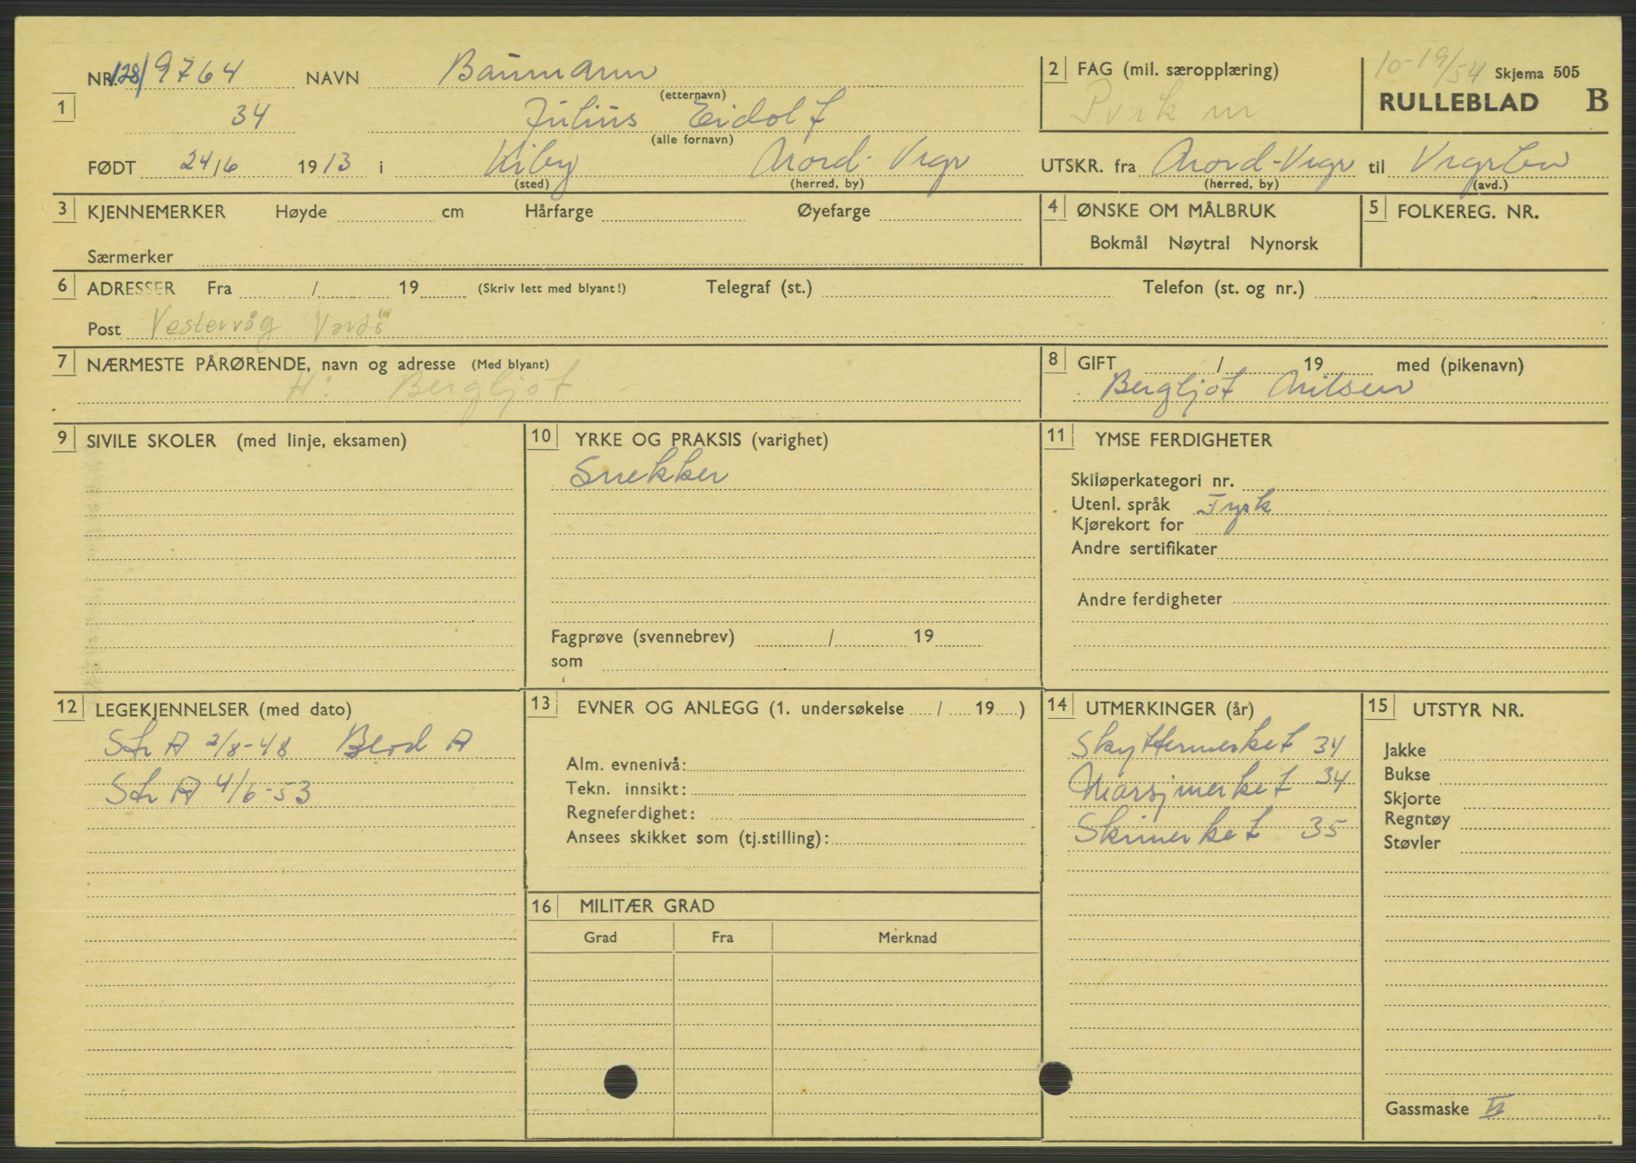 NR. 128/9764 NAVN Baumann
(etternavn)
1 34 Julius Eidolf
(alle fornavn)
FØDT 24/6 1913 i Kiby Nord-Vrgr
(sted) (herred, by)
2 FAG (mil. særopplæring)
10-19/54 Skjema 505
RULLEBLAD B
UTSKR. fra Nord-Vrgr til Vrgrbn
(herred, by) (avd.)
3 KJENNEMERKER Høyde cm Hårfarge Øyefarge
Særmerker
4 ØNSKE OM MÅLBRUK
Bokmål Nøytral Nynorsk
5 FOLKEREG. NR.
6 ADRESSER Fra / 19 (Skriv lett med blyant!) Telegraf (st.) Telefon (st. og nr.)
Post Vestervåg Vardö
7 NÆRMESTE PÅRØRENDE, navn og adresse (Med blyant)
H: Bergljot
8 GIFT / 19 med (pikenavn)
Bergljot Nilsen
9 SIVILE SKOLER (med linje, eksamen)
10 YRKE OG PRAKSIS (varighet)
Snekker
Fagprøve (svennebrev) / 19
som
11 YMSE FERDIGHETER
Skiløperkategori nr.
Utenl. språk Tysk
Kjørekort for
Andre sertifikater
Andre ferdigheter
12 LEGEKJENNELSER (med dato)
Str A 2/8-48 Blod A
Str A 4/6-53
13 EVNER OG ANLEGG (1. undersøkelse / 19 )
Alm. evnenivå:
Tekn. innsikt:
Regneferdighet:
Ansees skikket som (tj.stilling):
14 UTMERKINGER (år)
Skyttermerket 34
Marsjmerket 34
Skimerket 35
15 UTSTYR NR.
Jakke
Bukse
Skjorte
Regntøy
Støvler
Gassmaske II
16 MILITÆR GRAD
Grad Fra Merknad